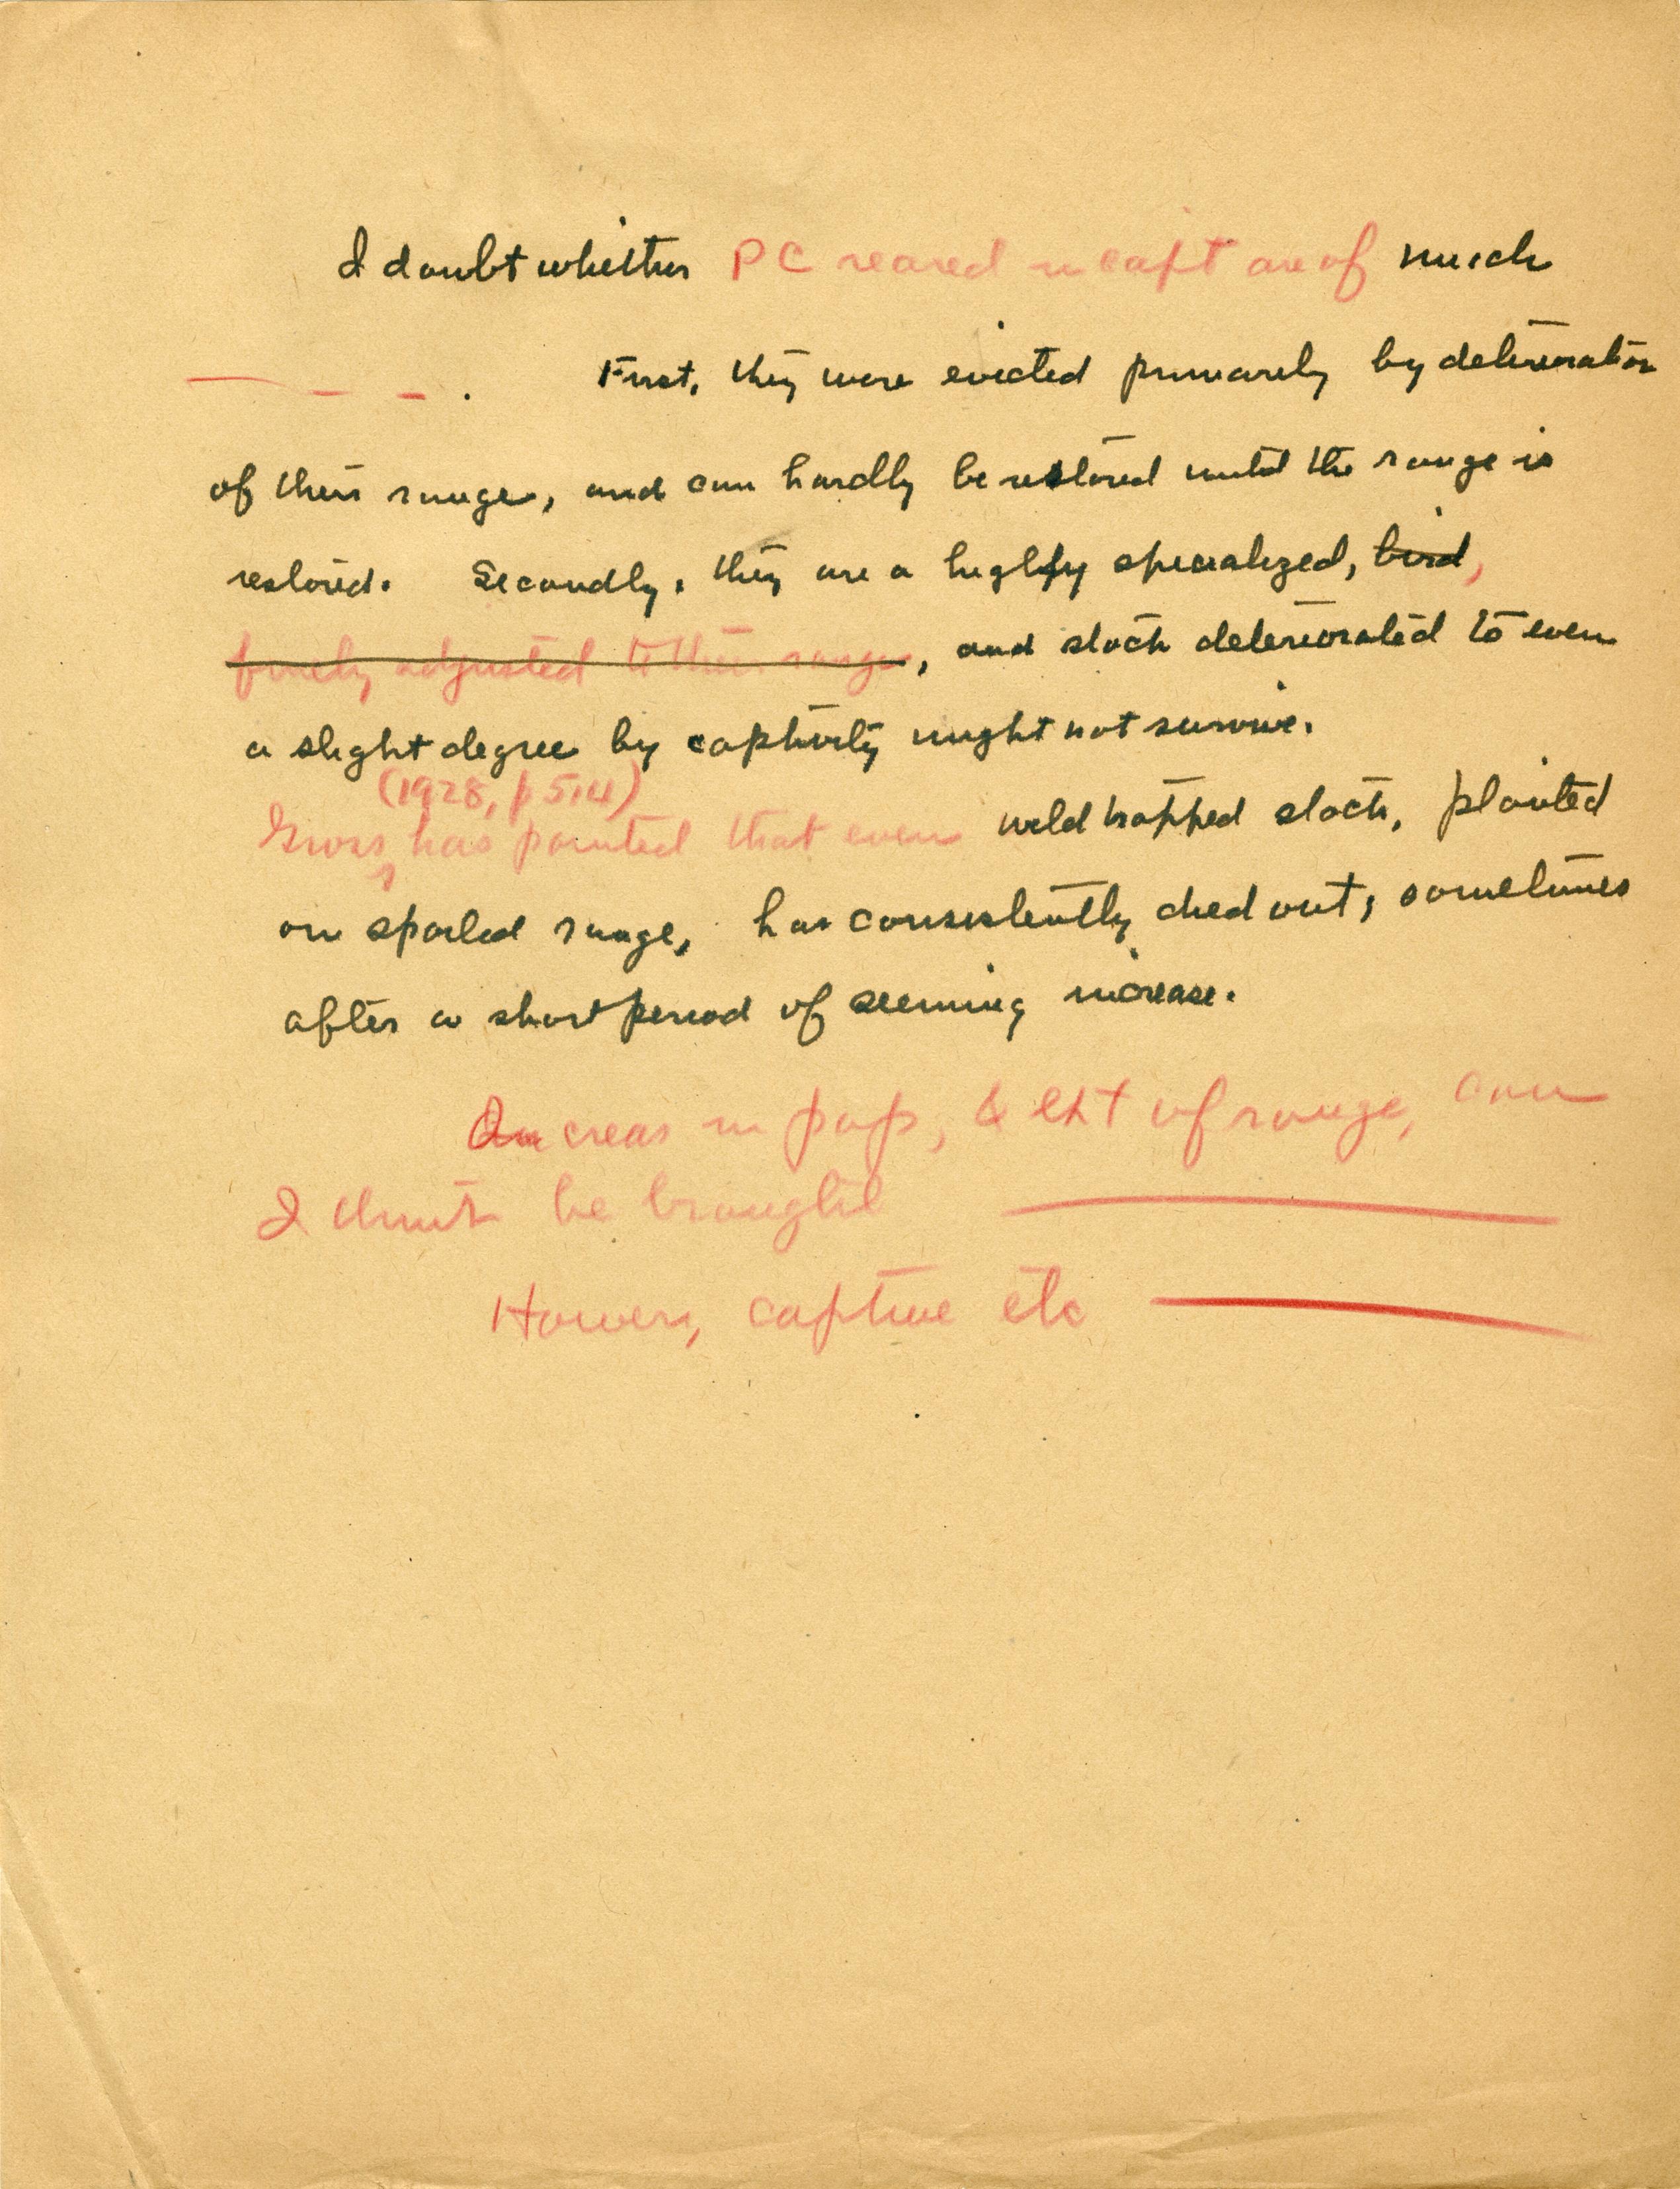 I doubt whether PC reared in capt are of much
. First, they were evicted primarily by deterioration
of their range, and can hardly be restored until the range is
restored. Secondly, they are a highly specialized, bird,
finely adjusted to their range, and stock deteriorated to even
a slight degree by captivity might not survive.
(1928, p 514)
Gross has pointed that even wild trapped stock, planted
on spoiled range, has consistently died out, sometimes
after a short period of seeming increase.
Increas in pop, & ext of range, can
I think be brought
However, captive etc